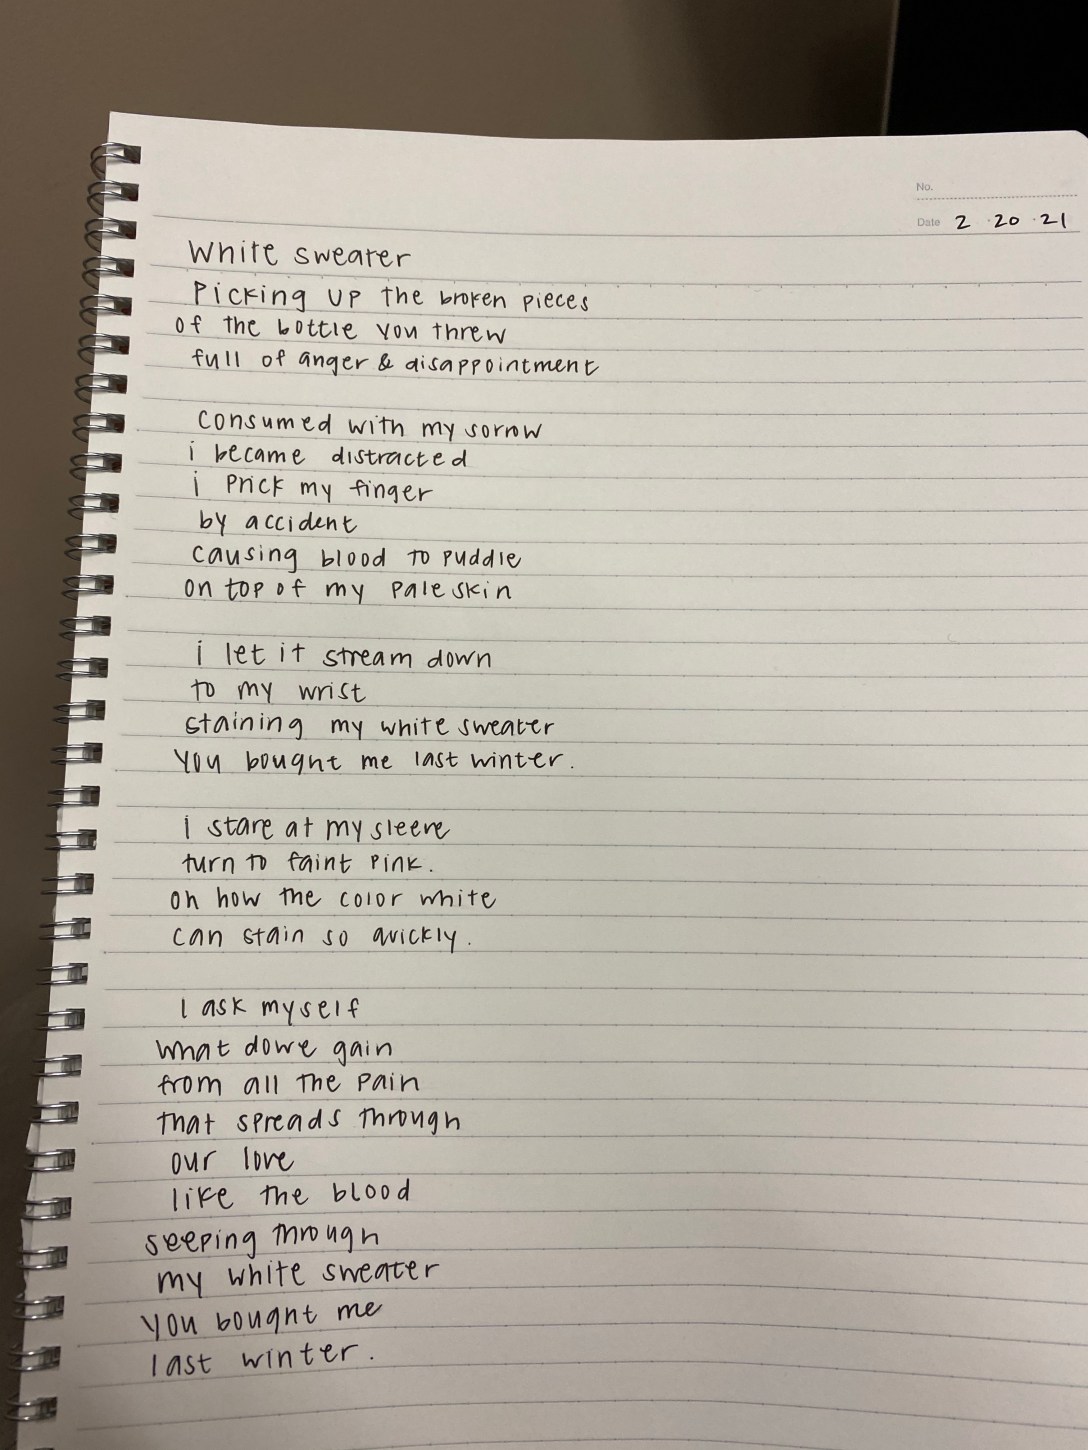 No.
Date 2 · 20 · 21
White sweater
Picking up the broken pieces
of the bottle you threw
full of anger & disappointment
consumed with my sorrow
i became distracted
i prick my finger
by accident
causing blood to puddle
on top of my pale skin
i let it stream down
to my wrist
staining my white sweater
You bought me last winter.
i stare at my sleeve
turn to faint pink.
oh how the color white
can stain so quickly.
I ask myself
what do we gain
from all the pain
that spreads through
our love
like the blood
seeping through
my white sweater
you bought me
last winter.